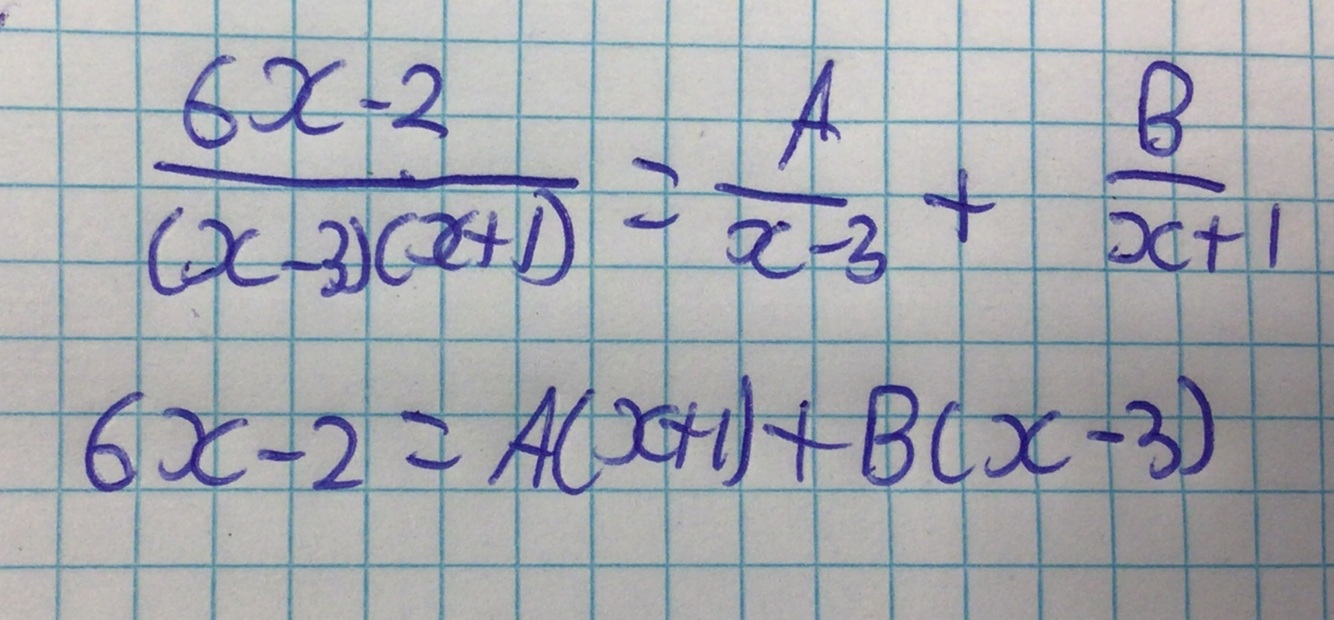 (6x-2)/((x-3)(x+1)) = A/(x-3) + B/(x+1)
6x-2 = A(x+1)+B(x-3)